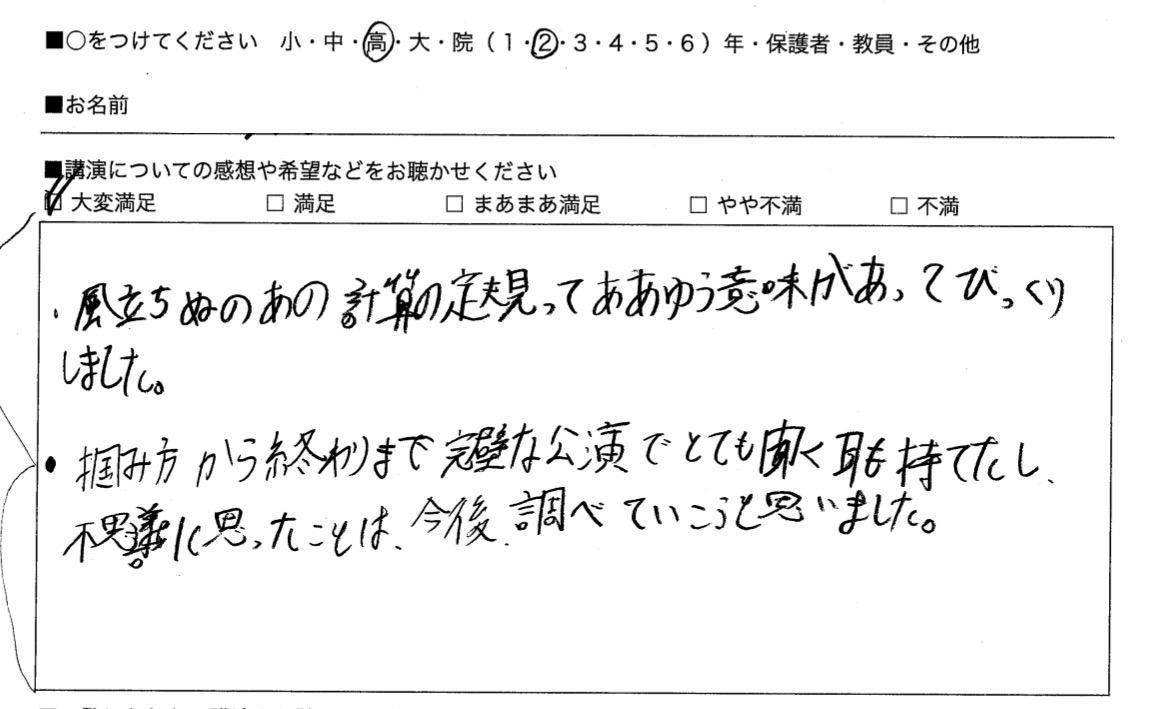 ■○をつけてください 小・中・高・大・院（1・2・3・4・5・6）年・保護者・教員・その他
■お名前
■講演についての感想や希望などをお聴かせください
□ 大変満足 □ 満足 □ まあまあ満足 □ やや不満 □ 不満
・風立ちぬのあの計算の定規ってああゆう意味があってびっくり
しました。
・掴み方から終わりまで完璧な公演でとても聞く耳も持てたし、
不思議に思ったことは、今後、調べていこうと思いました。